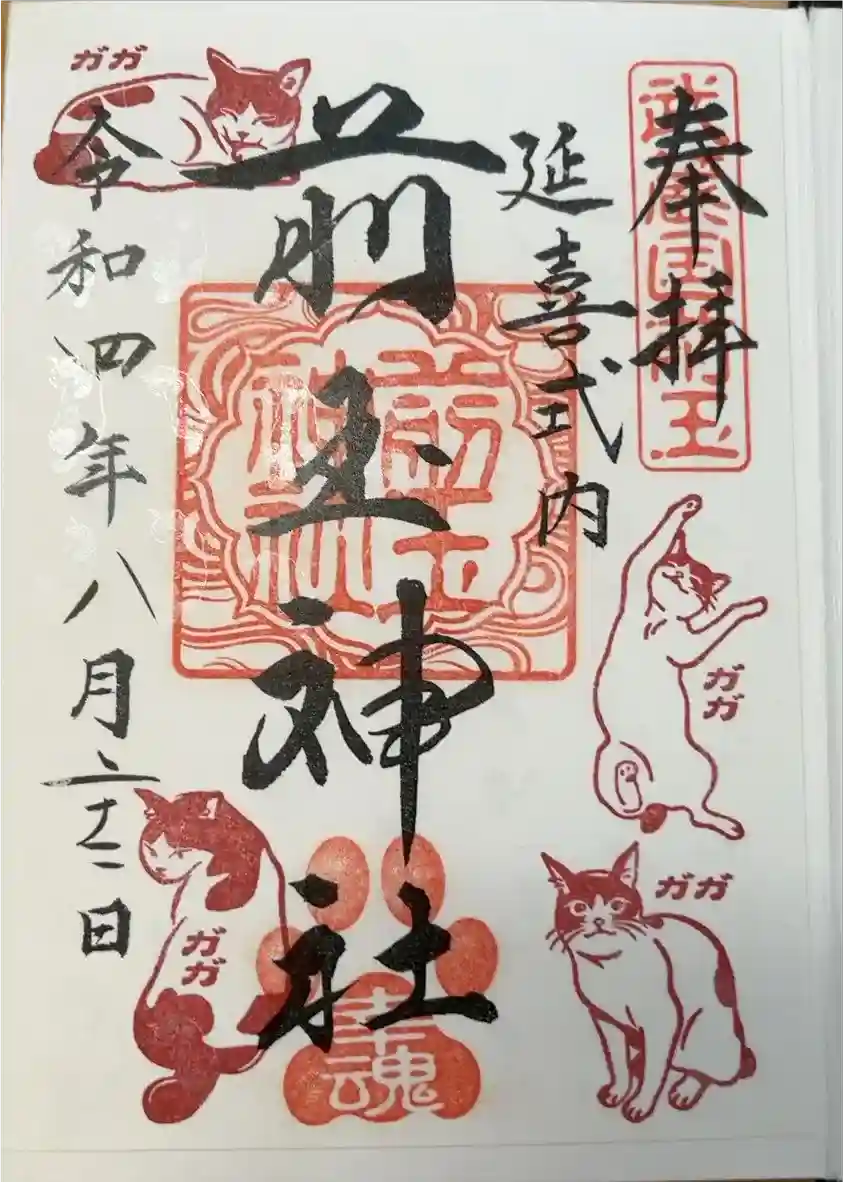 奉拝
武蔵国前玉
延喜式内
前玉神社
前玉
神社
令和四年八月二十二日
幸魂
ガガ
ガガ
ガガ
ガガ